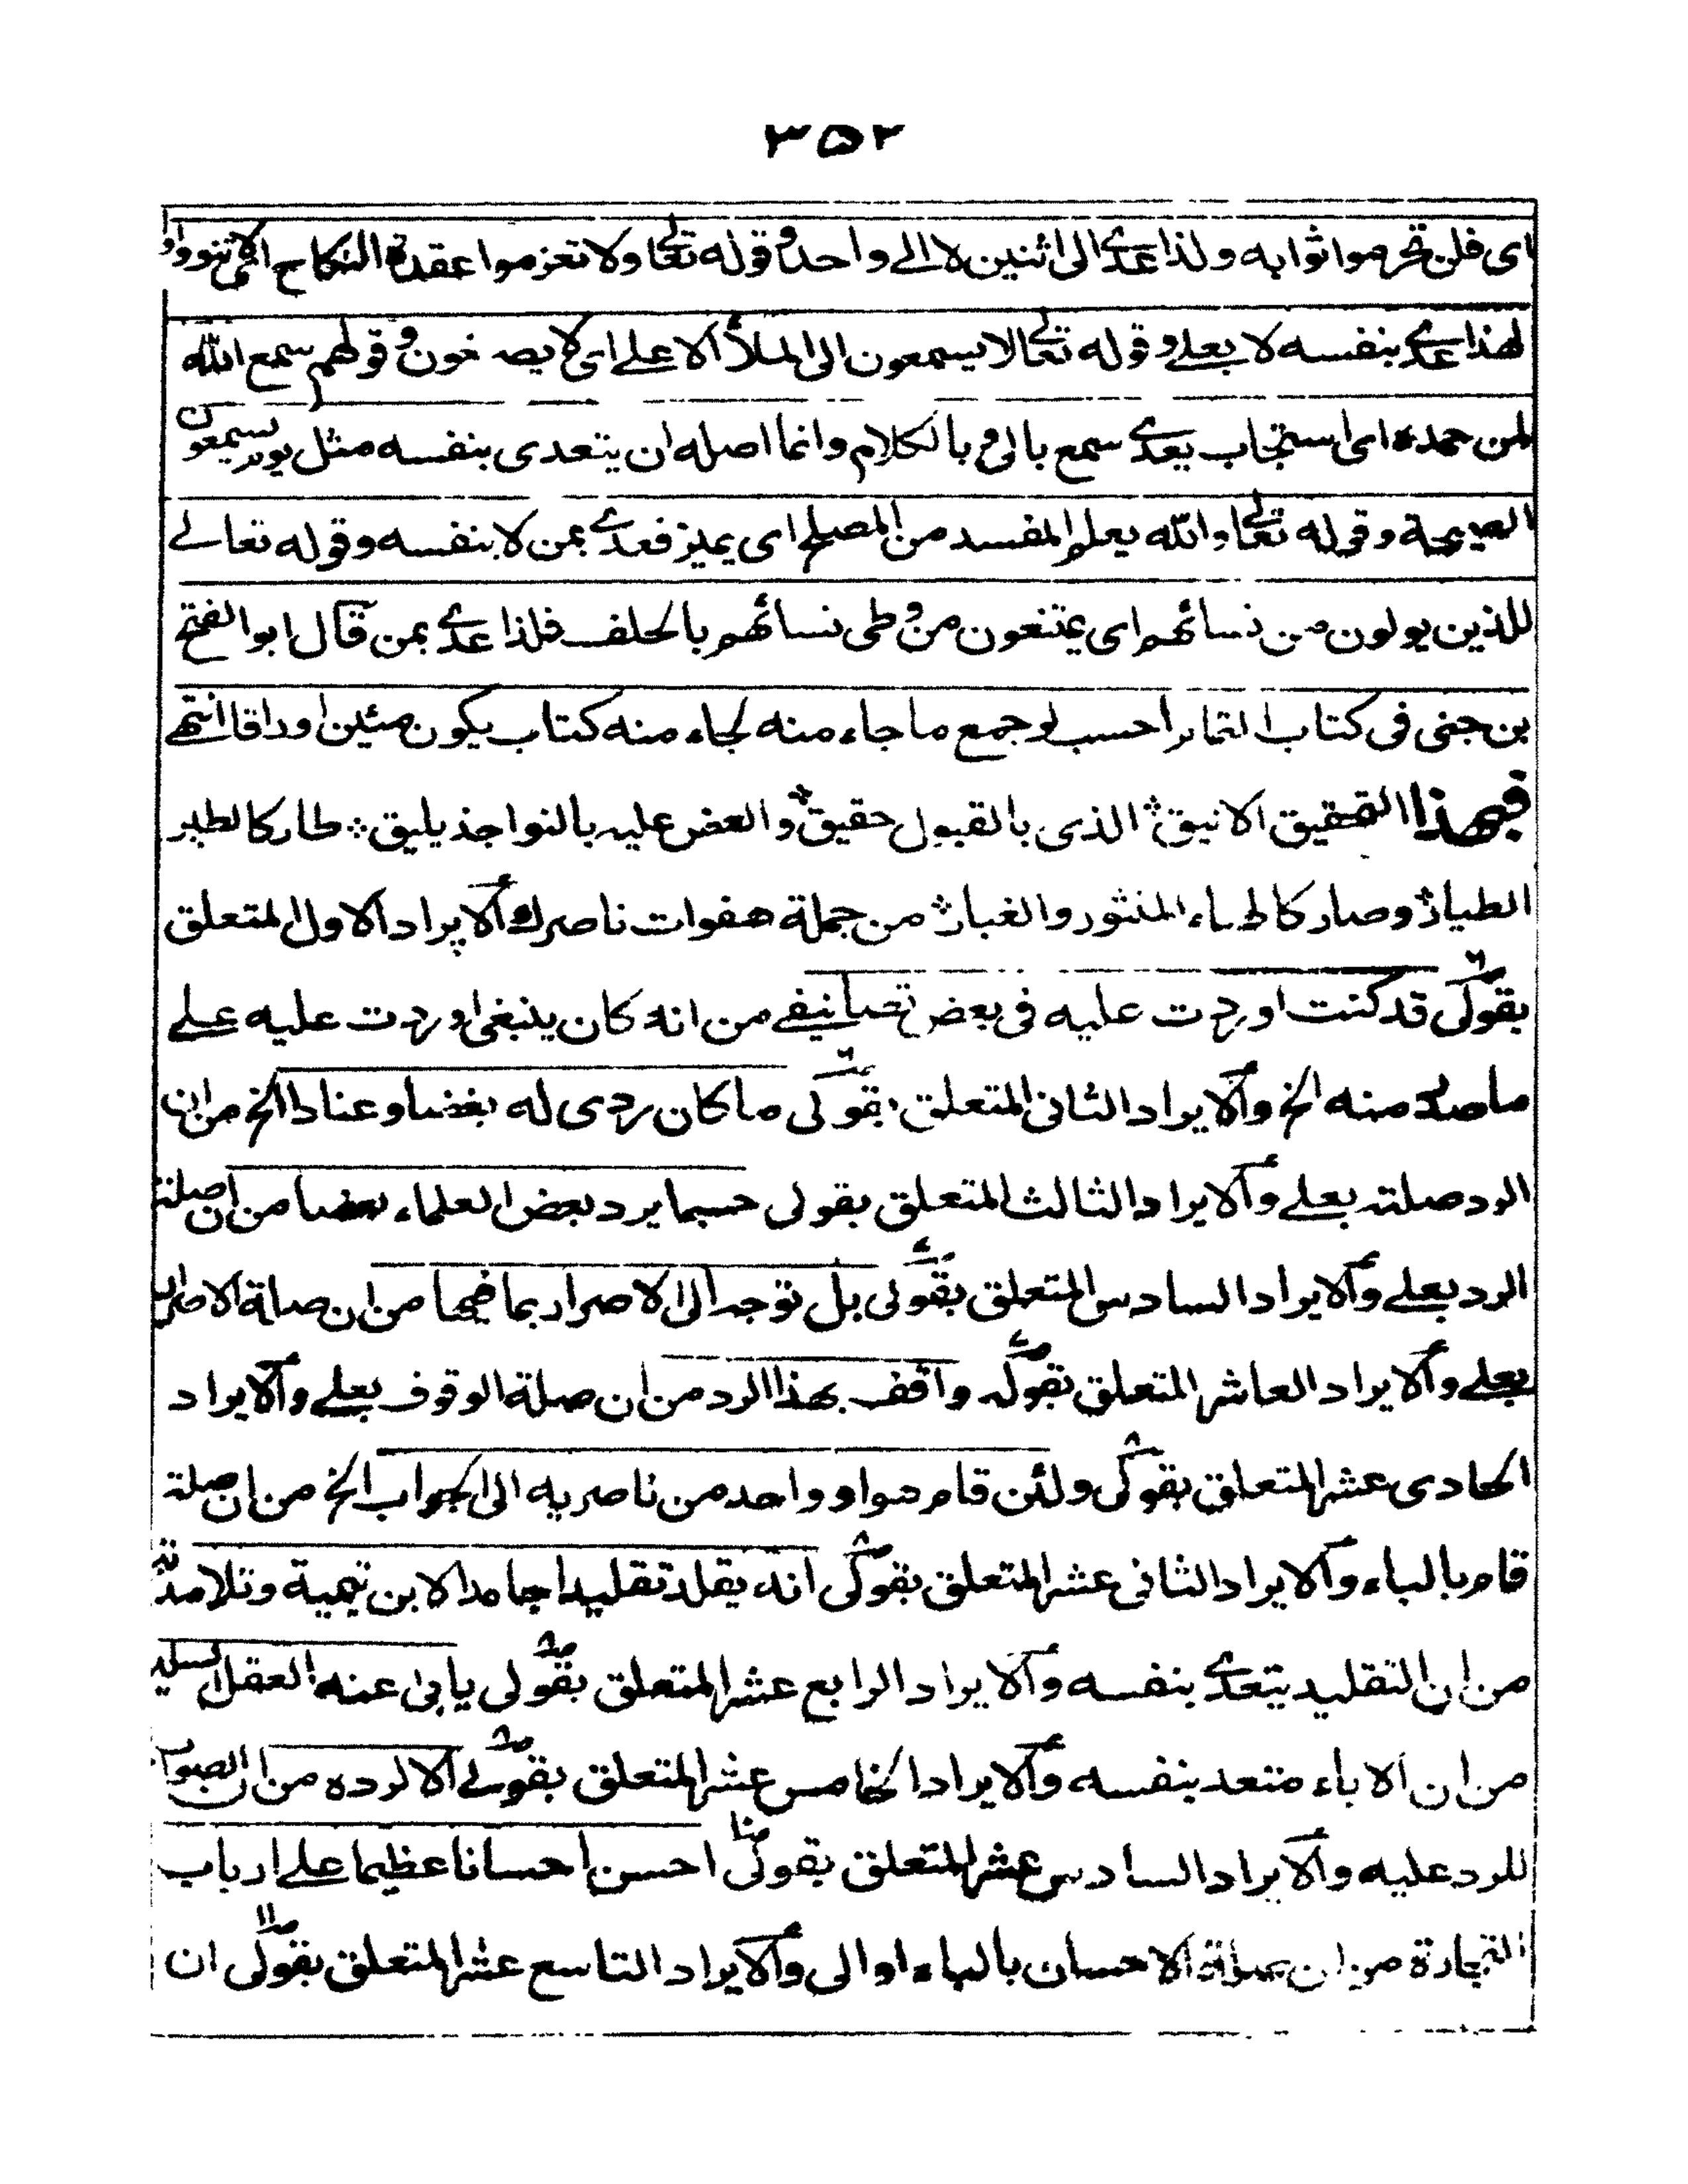 ٣٥٢
اى فلن تحرموا ثوابه ولذا عدي الى اثنين لا الى واحد وقوله تعالى ولا تعزموا عقدة النكاح اى لا تنووا و
لهذا عدي بنفسه لا بعلى وقوله تعالى لا يسمعون الى الملأ الاعلى اى لا يصغون وقولهم سمع الله
لمن حمده اى استجاب يعدي سمع بالى وبالكلام وانما اصله ان يتعدى بنفسه مثل يوم يسمعون
الصيحة وقوله تعالى والله يعلم المفسد من المصلح اى يميز فعدي بمن لا بنفسه وقوله تعالى
للذين يولون من نسائهم اى يمتنعون من وطى نسائهم بالحلف فلذا عدي بمن قال ابو الفتح
بن جنى فى كتاب التمام احسب لو جمع ما جاء منه لجاء منه كتاب يكون مئين اوراقا انتهى
فبهذا التحقيق الانيق الذى بالقبول حقيق والعض عليه بالنواجذ يليق طار كالطير
الطيار وصار كالهباء المنثور والغبار من جملة هفوات ناصرك الايراد الاول المتعلق
بقولى قد كنت اوردت عليه فى بعض تصانيفى من انه كان ينبغى اوردت عليه على
ما صدر منه الخ والايراد الثانى المتعلق بقولى ما كان ردى له بغضا وعنادا الخ من ان
الرد صلته بعلى والايراد الثالث المتعلق بقولى حسبما يرد بعض العلماء بعضا من ان صلة
الرد بعلى والايراد السادس المتعلق بقولى بل توجه الى الاصرار بما ضحا من ان صلة الاصرار
بعلى والايراد العاشر المتعلق بقوله واقف بهذا الرد من ان صلة الوقوف بعلى والايراد
الحادى عشر المتعلق بقولى ولئن قام هو او واحد من ناصريه الى الجواب الخ من ان صلة
قام بالباء والايراد الثانى عشر المتعلق بقولى انه يقلد تقليدا جامدا لابن تيمية وتلامذته
من ان التقليد يتعدي بنفسه والايراد الرابع عشر المتعلق بقولى يابى عنه العقل السليم
من ان الاباء متعد بنفسه والايراد الخامس عشر المتعلق بقولى الا لرده من ان الصواب
للرد عليه والايراد السادس عشر المتعلق بقولى احسن احسانا عظيما على ارباب
التجارة من ان صلة الاحسان بالباء او الى والايراد التاسع عشر المتعلق بقولى ان